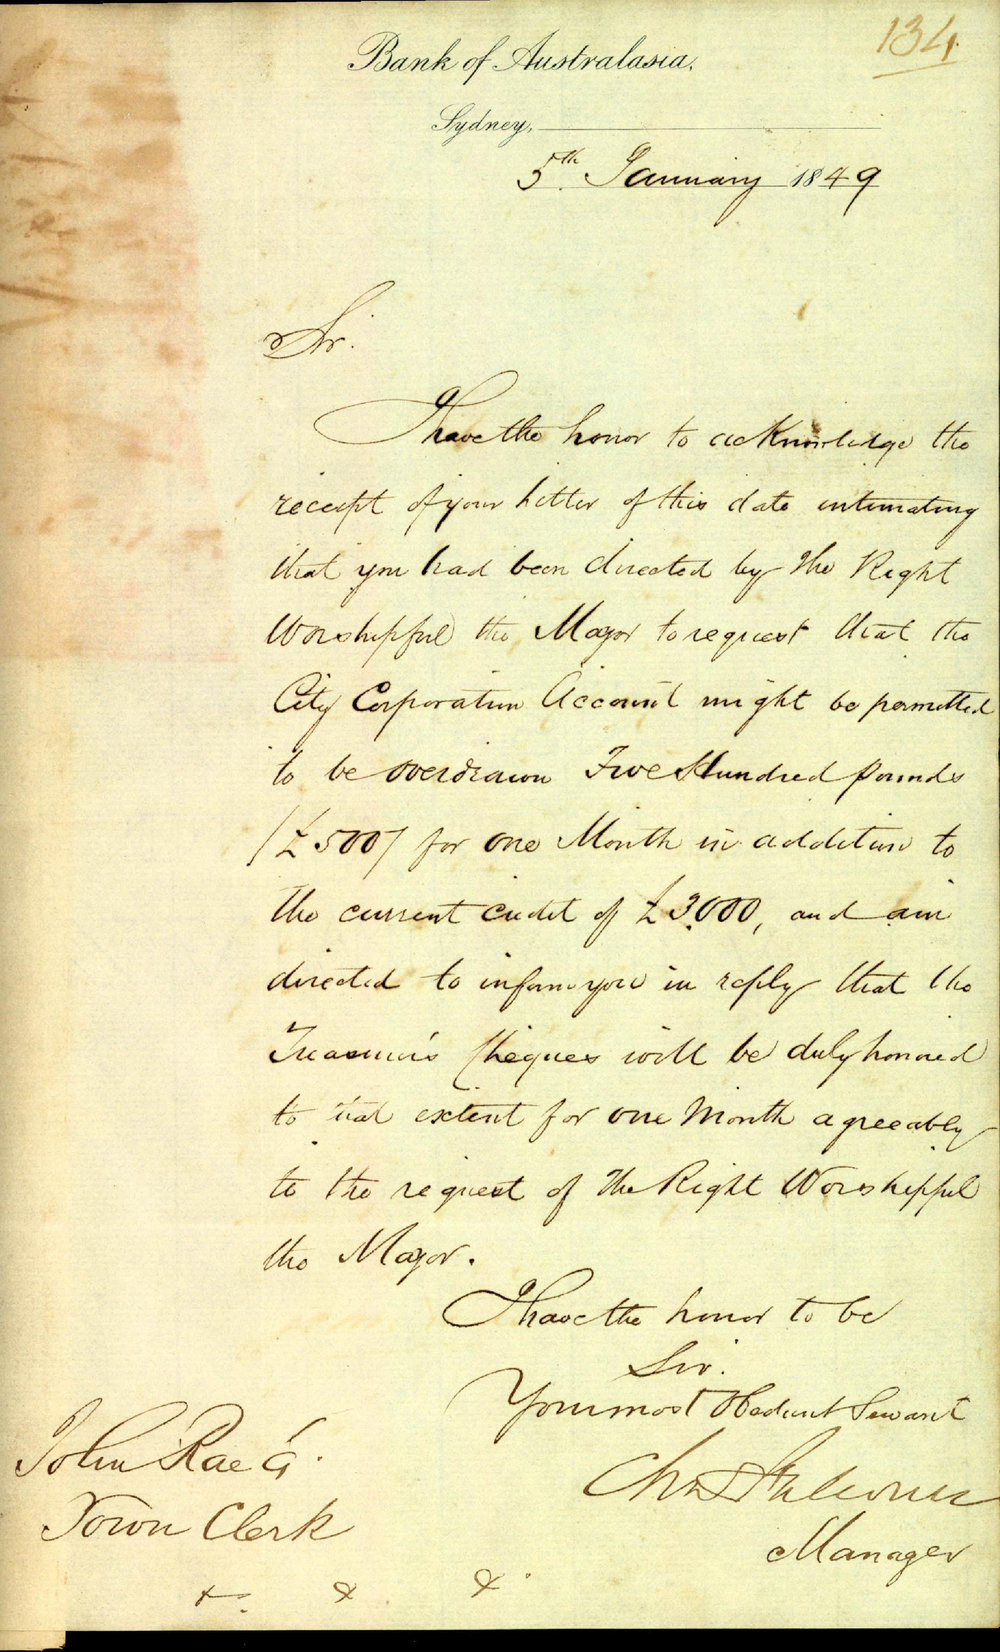 134
Bank of Australasia.
Sydney,
5th January 1849
Sir.
I have the honor to acknowledge the
receipt of your Letter of this date intimating
that you had been directed by the Right
Worshipful the Mayor to request that the
City Corporation Account might be permitted
to be overdrawn Five Hundred Pounds
/£500/ for one Month in addition to
the current credit of £3000, and am
directed to inform you in reply that the
Treasurer's Cheques will be duly honored
to that extent for one Month agreeably
to the request of the Right Worshipful
the Mayor.
I have the honor to be
Sir.
Your most Obedient Servant
Falconer
Manager
John Rae
Town Clerk
& & &